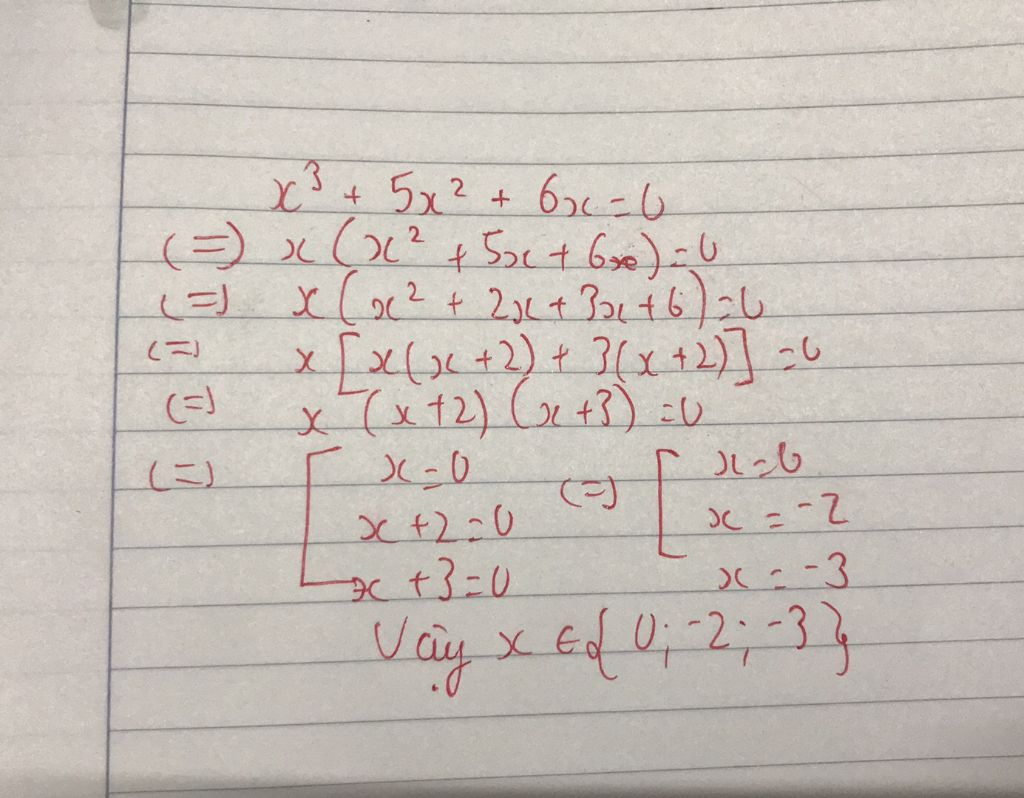 x³ + 5x² + 6x = 0
(=) x (x² + 5x + 6) = 0
(=) x (x² + 2x + 3x + 6) = 0
(=) x [x(x + 2) + 3(x + 2)] = 0
(=) x (x + 2) (x + 3) = 0
(=) [ x = 0 (=) [ x = 0
x + 2 = 0 x = -2
x + 3 = 0 x = -3
Vậy x ∈ { 0; -2; -3}